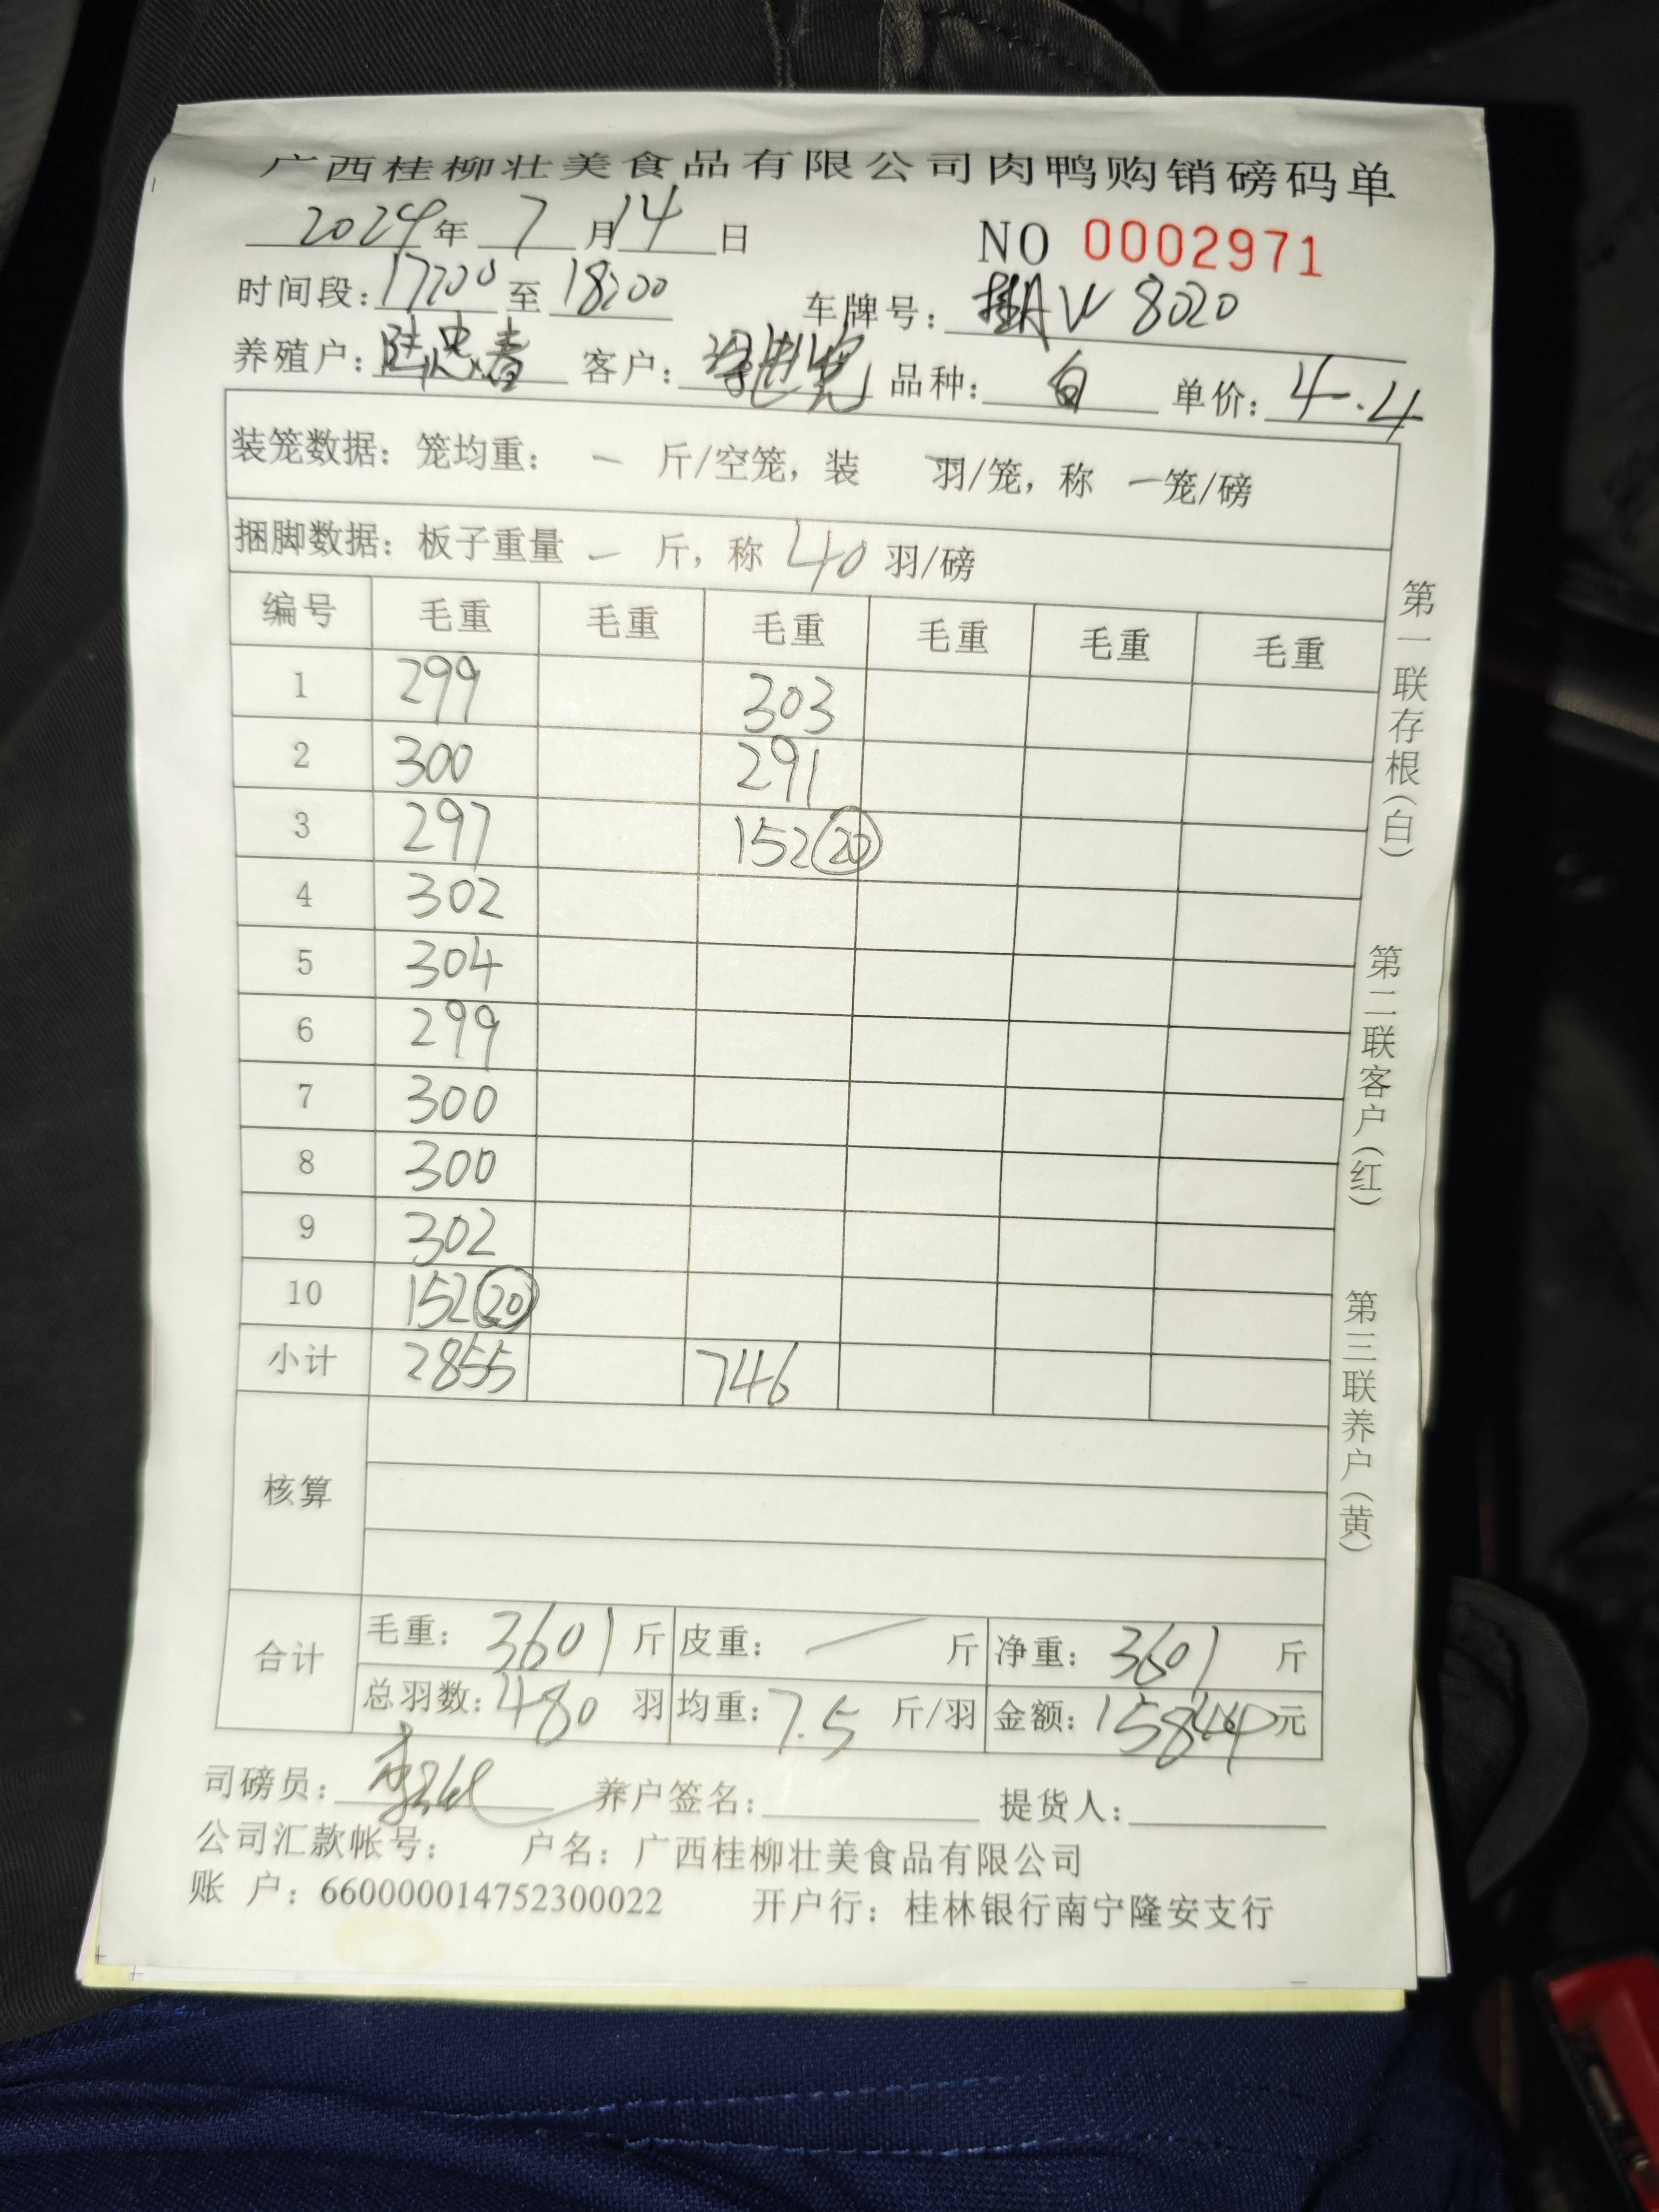 广西桂柳壮美食品有限公司肉鸭购销磅码单
2024年 7 月 14 日 NO 0002971
时间段: 17:00 至 18:00 车牌号: 桂AW 8020
养殖户: 陆忠春 客户: 品种: 白 单价: 4.4
装笼数据: 笼均重: 一 斤/空笼, 装 一 羽/笼, 称 一 笼/磅
捆脚数据: 板子重量 一 斤, 称 40 羽/磅
编号 毛重 毛重 毛重 毛重 毛重 毛重
1 299 303
2 300 291
3 297 152 20
4 302
5 304
6 299
7 300
8 300
9 302
10 152 20
小计 2855 746
核算
合计 毛重: 3601 斤 皮重: — 斤 净重: 3601 斤
总羽数: 480 羽 均重: 7.5 斤/羽 金额: 15844 元
司磅员: 养户签名: 提货人:
公司汇款帐号: 户名: 广西桂柳壮美食品有限公司
账 户: 660000014752300022 开户行: 桂林银行南宁隆安支行
第一联存根(白) 第二联客户(红) 第三联养户(黄)